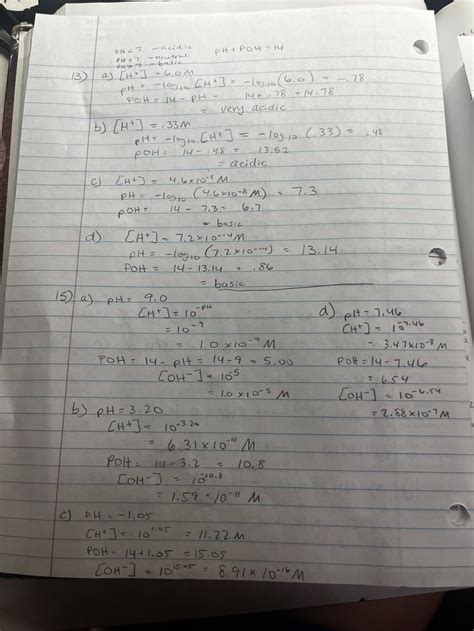 pH < 7 - acidic pH + pOH = 14
pH = 7 - neutral
pH > 7 - basic
13) a) [H+] = 6.0 M
pH = -log10 [H+] = -log10 (6.0) = -.78
pOH = 14 - pH = 14 + .78 = 14.78
= very acidic
b) [H+] = .33 M
pH = -log10 [H+] = -log10 (.33) = .48
pOH = 14 - .48 = 13.52
= acidic
c) [H+] = 4.6 x 10-8 M
pH = -log10 (4.6 x 10-8 M) = 7.3
pOH = 14 - 7.3 = 6.7
= basic
d) [H+] = 7.2 x 10-14 M
pH = -log10 (7.2 x 10-14) = 13.14
pOH = 14 - 13.14 = .86
= basic
15) a) pH = 9.0
[H+] = 10-pH
= 10-9
= 1.0 x 10-9 M
pOH = 14 - pH = 14 - 9 = 5.00
[OH-] = 10-5
= 1.0 x 10-5 M
b) pH = 3.20
[H+] = 10-3.20
= 6.31 x 10-4 M
pOH = 14 - 3.2 = 10.8
[OH-] = 10-10.8
= 1.59 x 10-11 M
c) pH = -1.05
[H+] = 10 1.05 = 11.22 M
pOH = 14 + 1.05 = 15.05
[OH-] = 10 15.05 = 8.91 x 10-16 M
d) pH = 7.46
[H+] = 10-7.46
= 3.47 x 10-8 M
pOH = 14 - 7.46
= 6.54
[OH-] = 10-6.54
= 2.88 x 10-7 M